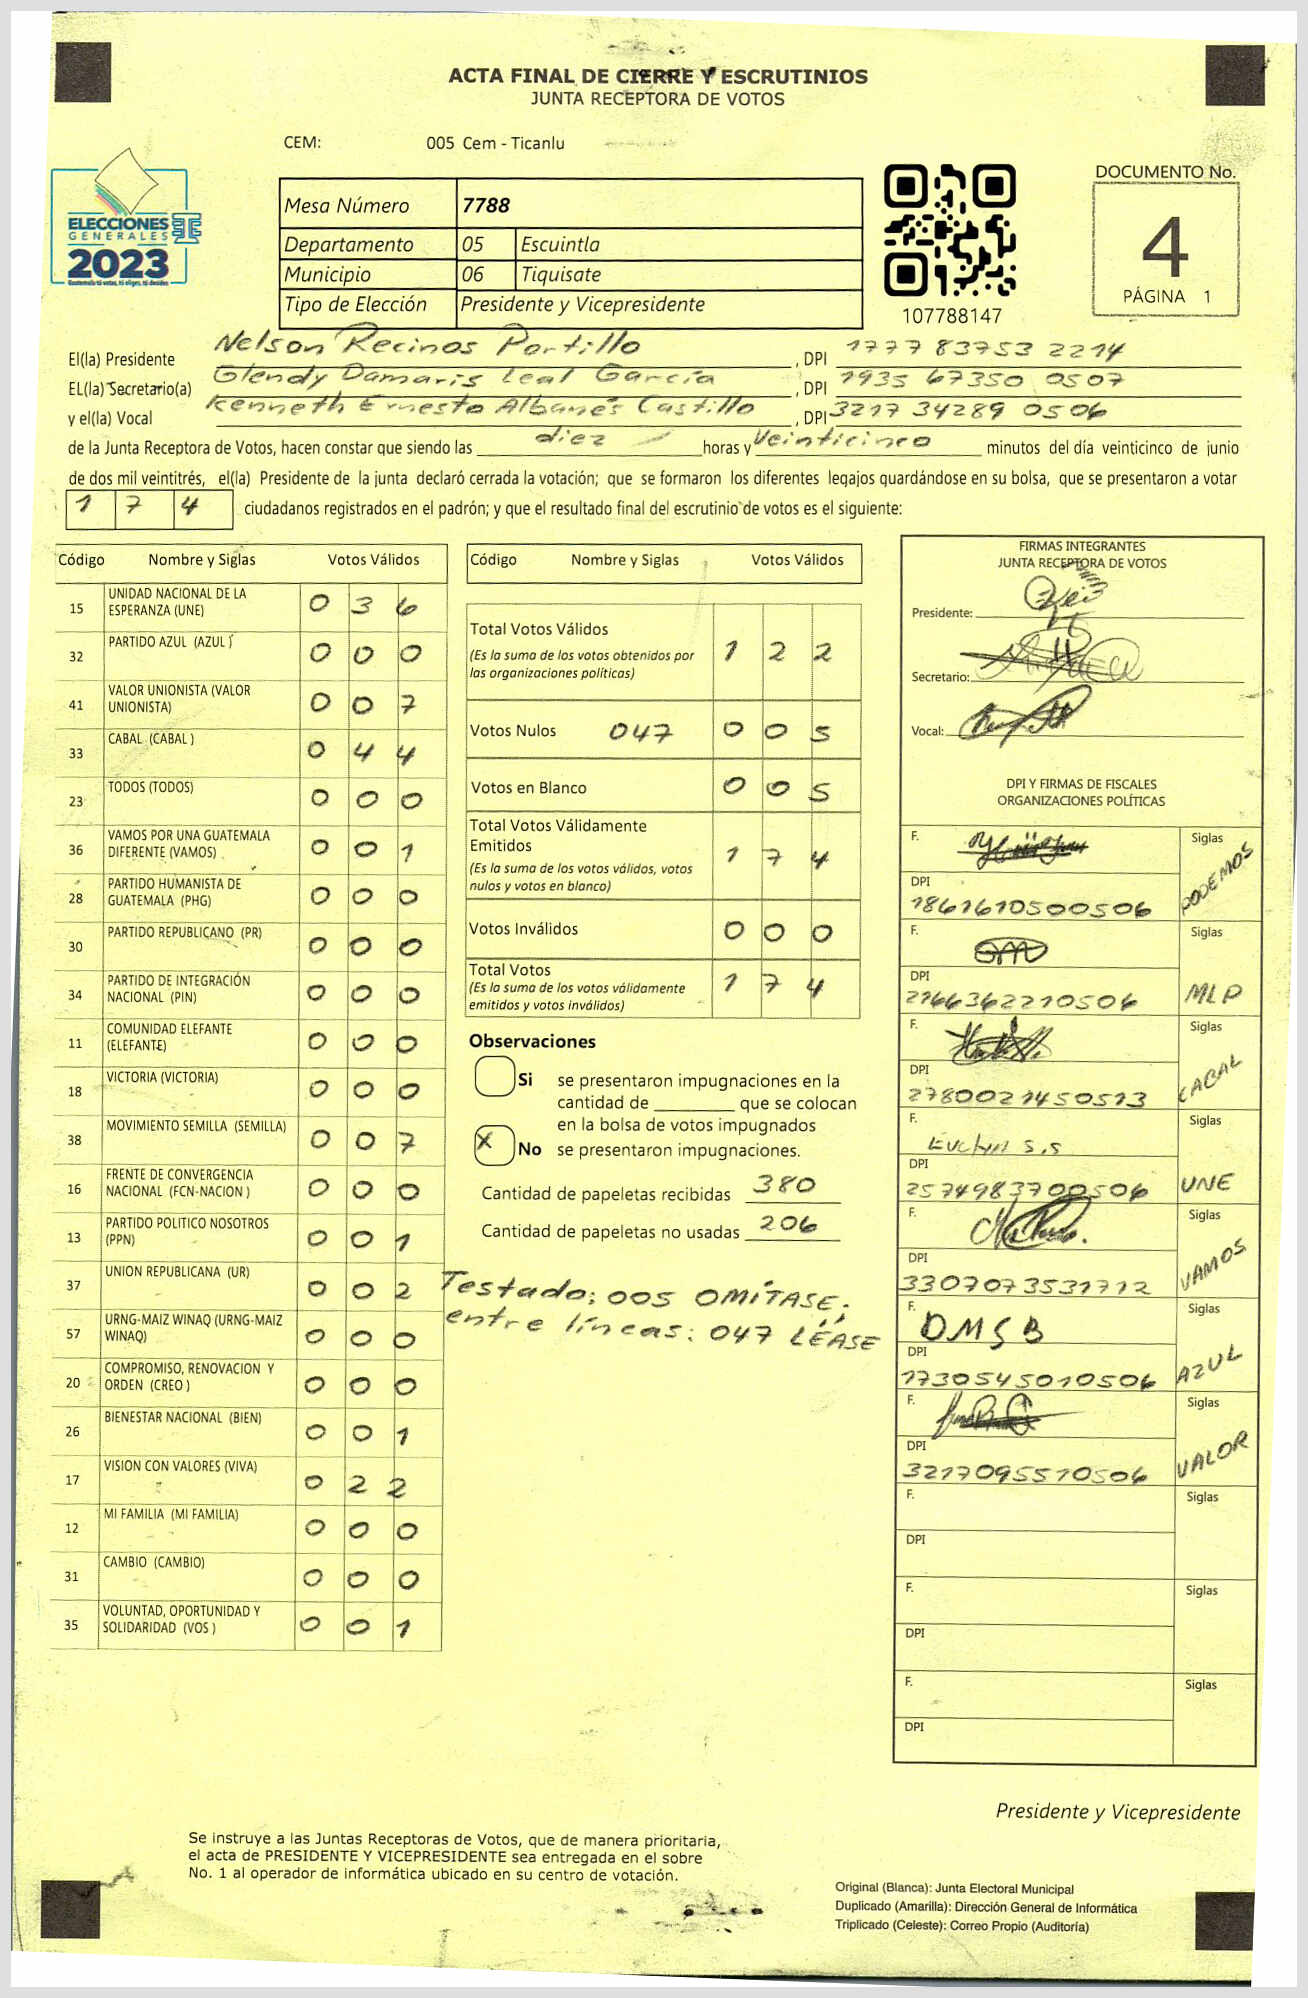 ACTA FINAL DE CIERRE Y ESCRUTINIOS
JUNTA RECEPTORA DE VOTOS
CEM: 005 Cem - Ticanlu
ELECCIONES
GENERALES
2023
Guatemala tú votas, tú eliges, tú decides
TSE
Mesa Número 7788
Departamento 05 Escuintla
Municipio 06 Tiquisate
Tipo de Elección Presidente y Vicepresidente
107788147
DOCUMENTO No.
4
PÁGINA 1
El(la) Presidente Nelson Recinos Portillo, DPI 1777 83753 2214
EL(la) Secretario(a) Glendy Damaris Leal García, DPI 1935 67350 0507
y el(la) Vocal Kenneth Ernesto Albanés Castillo, DPI 3217 34289 0506
de la Junta Receptora de Votos, hacen constar que siendo las diez horas y Veinticinco minutos del día veinticinco de junio
de dos mil veintitrés, el(la) Presidente de la junta declaró cerrada la votación; que se formaron los diferentes legajos quardándose en su bolsa, que se presentaron a votar
1 7 4 ciudadanos registrados en el padrón; y que el resultado final del escrutinio de votos es el siguiente:
Código Nombre y Siglas Votos Válidos
15 UNIDAD NACIONAL DE LA ESPERANZA (UNE) 0 3 6
32 PARTIDO AZUL (AZUL ) 0 0 0
41 VALOR UNIONISTA (VALOR UNIONISTA) 0 0 7
33 CABAL (CABAL ) 0 4 4
23 TODOS (TODOS) 0 0 0
36 VAMOS POR UNA GUATEMALA DIFERENTE (VAMOS) 0 0 1
28 PARTIDO HUMANISTA DE GUATEMALA (PHG) 0 0 0
30 PARTIDO REPUBLICANO (PR) 0 0 0
34 PARTIDO DE INTEGRACIÓN NACIONAL (PIN) 0 0 0
11 COMUNIDAD ELEFANTE (ELEFANTE) 0 0 0
18 VICTORIA (VICTORIA) 0 0 0
38 MOVIMIENTO SEMILLA (SEMILLA) 0 0 7
16 FRENTE DE CONVERGENCIA NACIONAL (FCN-NACION ) 0 0 0
13 PARTIDO POLITICO NOSOTROS (PPN) 0 0 1
37 UNION REPUBLICANA (UR) 0 0 2
57 URNG-MAIZ WINAQ (URNG-MAIZ WINAQ) 0 0 0
20 COMPROMISO, RENOVACION Y ORDEN (CREO ) 0 0 0
26 BIENESTAR NACIONAL (BIEN) 0 0 1
17 VISION CON VALORES (VIVA) 0 2 2
12 MI FAMILIA (MI FAMILIA) 0 0 0
31 CAMBIO (CAMBIO) 0 0 0
35 VOLUNTAD, OPORTUNIDAD Y SOLIDARIDAD (VOS ) 0 0 1
Código Nombre y Siglas Votos Válidos
Total Votos Válidos 1 2 2
(Es la suma de los votos obtenidos por
las organizaciones políticas)
Votos Nulos 047 0 0 5
Votos en Blanco 0 0 5
Total Votos Válidamente
Emitidos 1 7 4
(Es la suma de los votos válidos, votos
nulos y votos en blanco)
Votos Inválidos 0 0 0
Total Votos 1 7 4
(Es la suma de los votos válidamente
emitidos y votos inválidos)
Observaciones
Si se presentaron impugnaciones en la
cantidad de ________ que se colocan
en la bolsa de votos impugnados
X No se presentaron impugnaciones.
Cantidad de papeletas recibidas 380
Cantidad de papeletas no usadas 206
Testado: 005 OMÍTASE;
entre líneas: 047 LÉASE
FIRMAS INTEGRANTES
JUNTA RECEPTORA DE VOTOS
Presidente:
Secretario:
Vocal:
DPI Y FIRMAS DE FISCALES
ORGANIZACIONES POLÍTICAS
F. Siglas PODEMOS
DPI 1861610500506
F. Siglas MLP
DPI 2166362210506
F. Siglas CABAL
DPI 2780021450513
F. Evelyn S.S Siglas UNE
DPI 2574983700506
F. Siglas VAMOS
DPI 3307073531712
F. DMSB Siglas AZUL
DPI 1730545010506
F. Siglas VALOR
DPI 3217095510506
F. Siglas
DPI
F. Siglas
DPI
F. Siglas
DPI
Presidente y Vicepresidente
Se instruye a las Juntas Receptoras de Votos, que de manera prioritaria,
el acta de PRESIDENTE Y VICEPRESIDENTE sea entregada en el sobre
No. 1 al operador de informática ubicado en su centro de votación.
Original (Blanca): Junta Electoral Municipal
Duplicado (Amarilla): Dirección General de Informática
Triplicado (Celeste): Correo Propio (Auditoría)